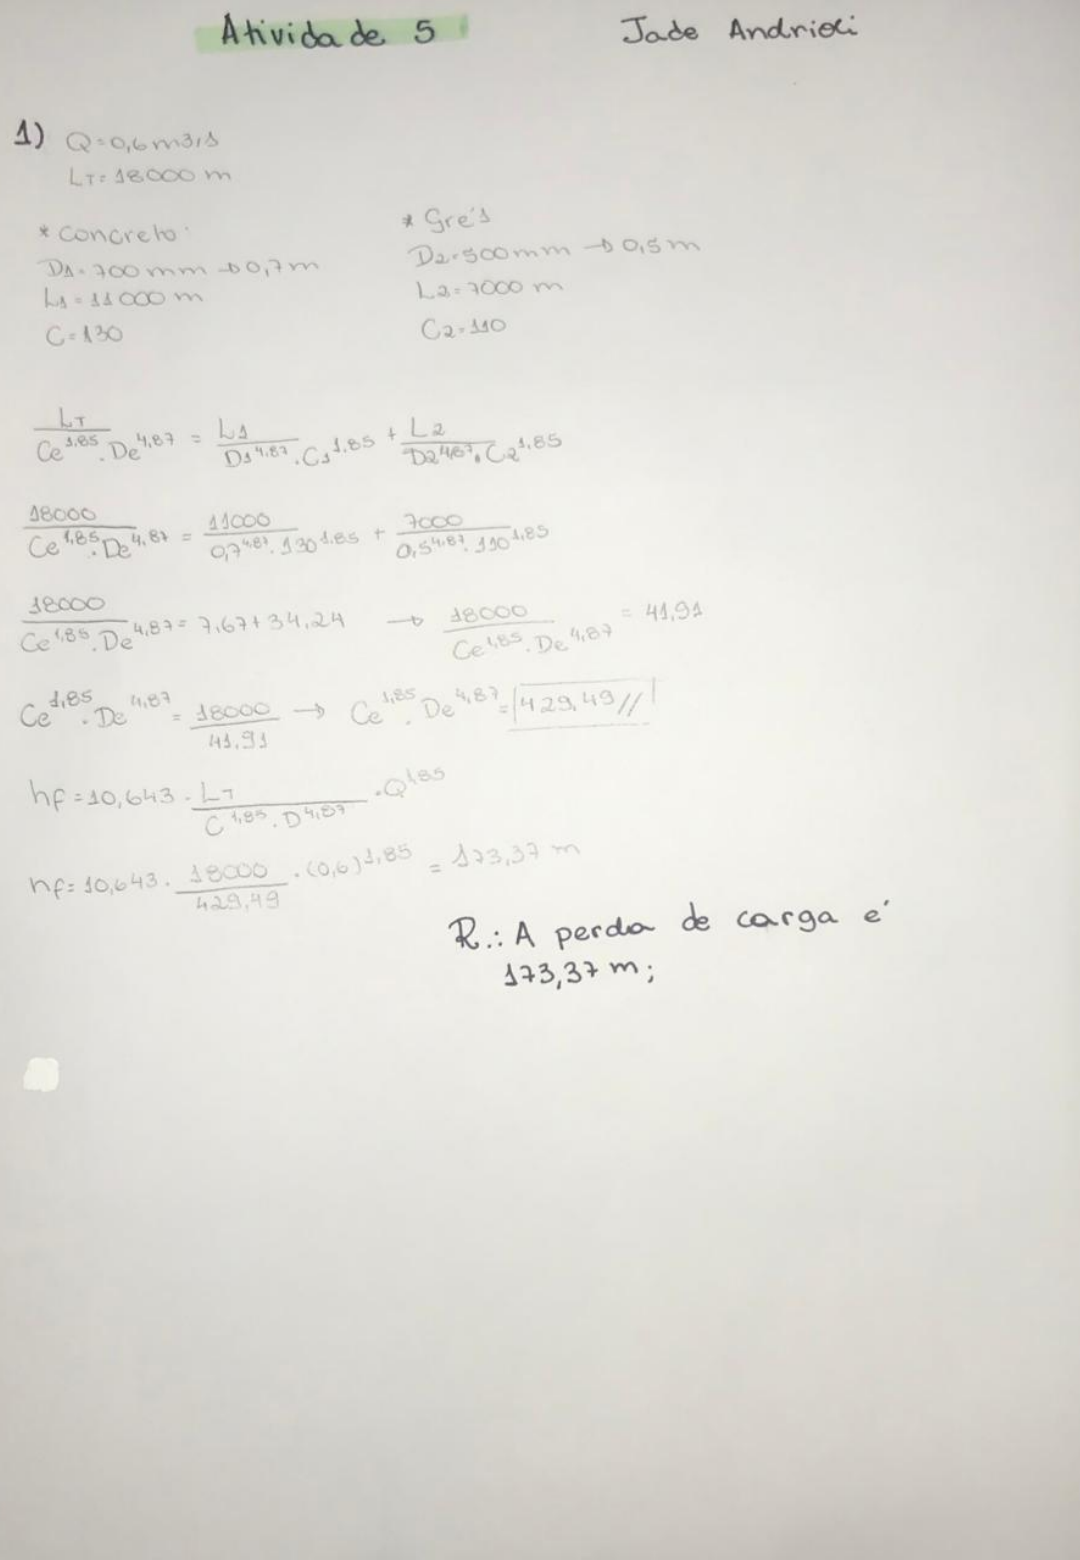 Atividade 5 Jade Andrioli
1) Q=0,6 m3/s
LT= 18000 m
* Concreto:
D1=700 mm → 0,7m
L1 = 11000 m
C=130
* Grés
D2=500mm → 0,5m
L2=7000 m
C2=110
LT / Ce^1,85 . De^4,87 = L1 / D1^4,87 . C1^1,85 + L2 / D2^4,87 . C2^1,85
18000 / Ce^1,85 . De^4,87 = 11000 / 0,7^4,87 . 130^1,85 + 7000 / 0,5^4,87 . 110^1,85
18000 / Ce^1,85 . De^4,87 = 7,67+34,24 → 18000 / Ce^1,85 . De^4,87 = 41,91
Ce^1,85 . De^4,87 = 18000 / 41,91 → Ce^1,85 . De^4,87 = 429,49//
hf = 10,643 . LT / C^1,85 . D^4,87 . Q^1,85
hf = 10,643 . 18000 / 429,49 . (0,6)^1,85 = 173,37 m
R.: A perda de carga é
173,37 m;